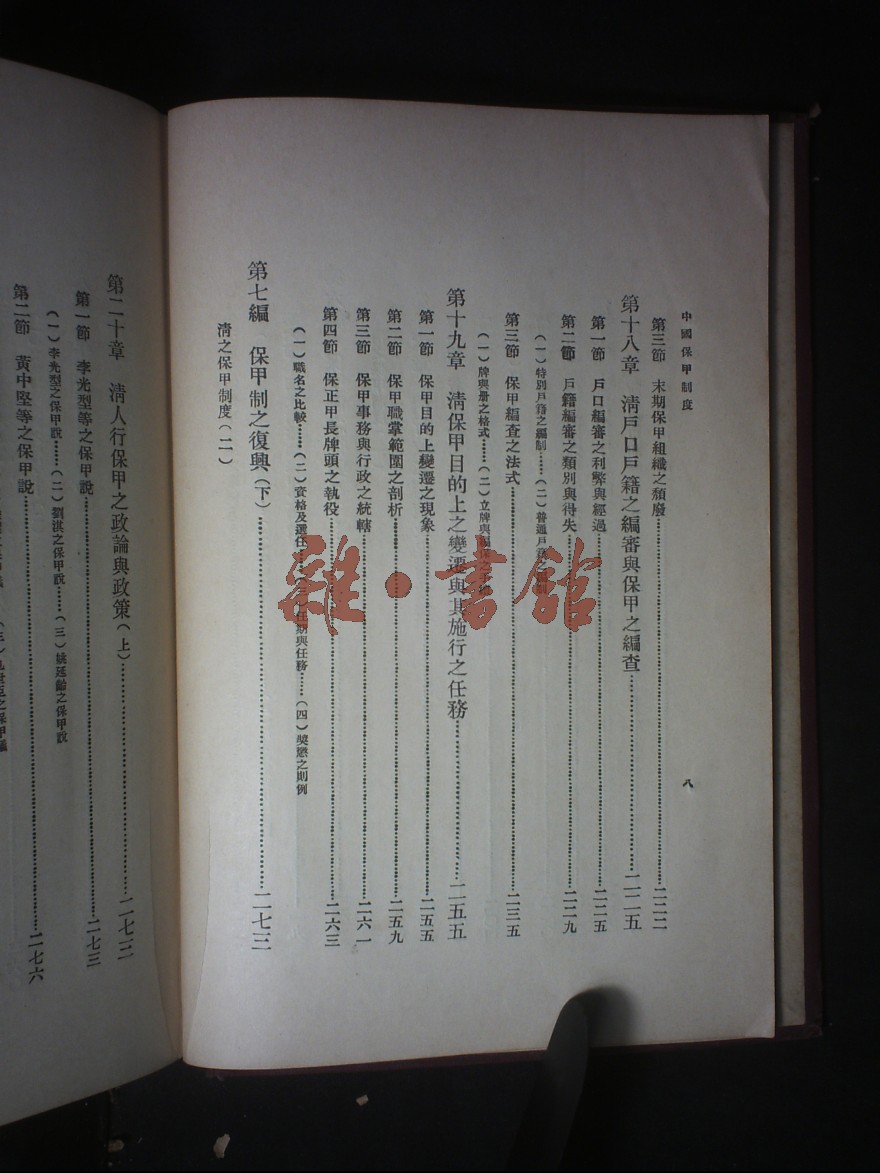 中國保甲制度
八
第三節　末期保甲組織之頹廢……二二二
第十八章　淸戶口戶籍之編審與保甲之編查……二二五
第一節　戶口編審之利弊與經過……二二五
第二節　戶籍編審之類別與得失……二二九
(一)特別戶籍之編制……(二)普通戶籍之
第三節　保甲編查之法式……二三五
(一)牌與册之格式……(二)立牌與
第十九章　淸保甲目的上之變遷與其施行之任務……二五五
第一節　保甲目的上變遷之現象……二五五
第二節　保甲職掌範圍之剖析……二五九
第三節　保甲事務與行政之統轄……二六一
第四節　保正甲長牌頭之執役……二六三
(一)職名之比較……(二)資格及選任……(三)任期與任務……(四)獎懲之則例
第七編　保甲制之復興(下)……二七三
淸之保甲制度(二)
第二十章　淸人行保甲之政論與政策(上)……二七三
第一節　李光型等之保甲說……二七三
(一)李光型之保甲說……(二)劉淇之保甲說……(三)姚延齡之保甲說
第二節　黃中堅等之保甲說……二七六
雜·書館